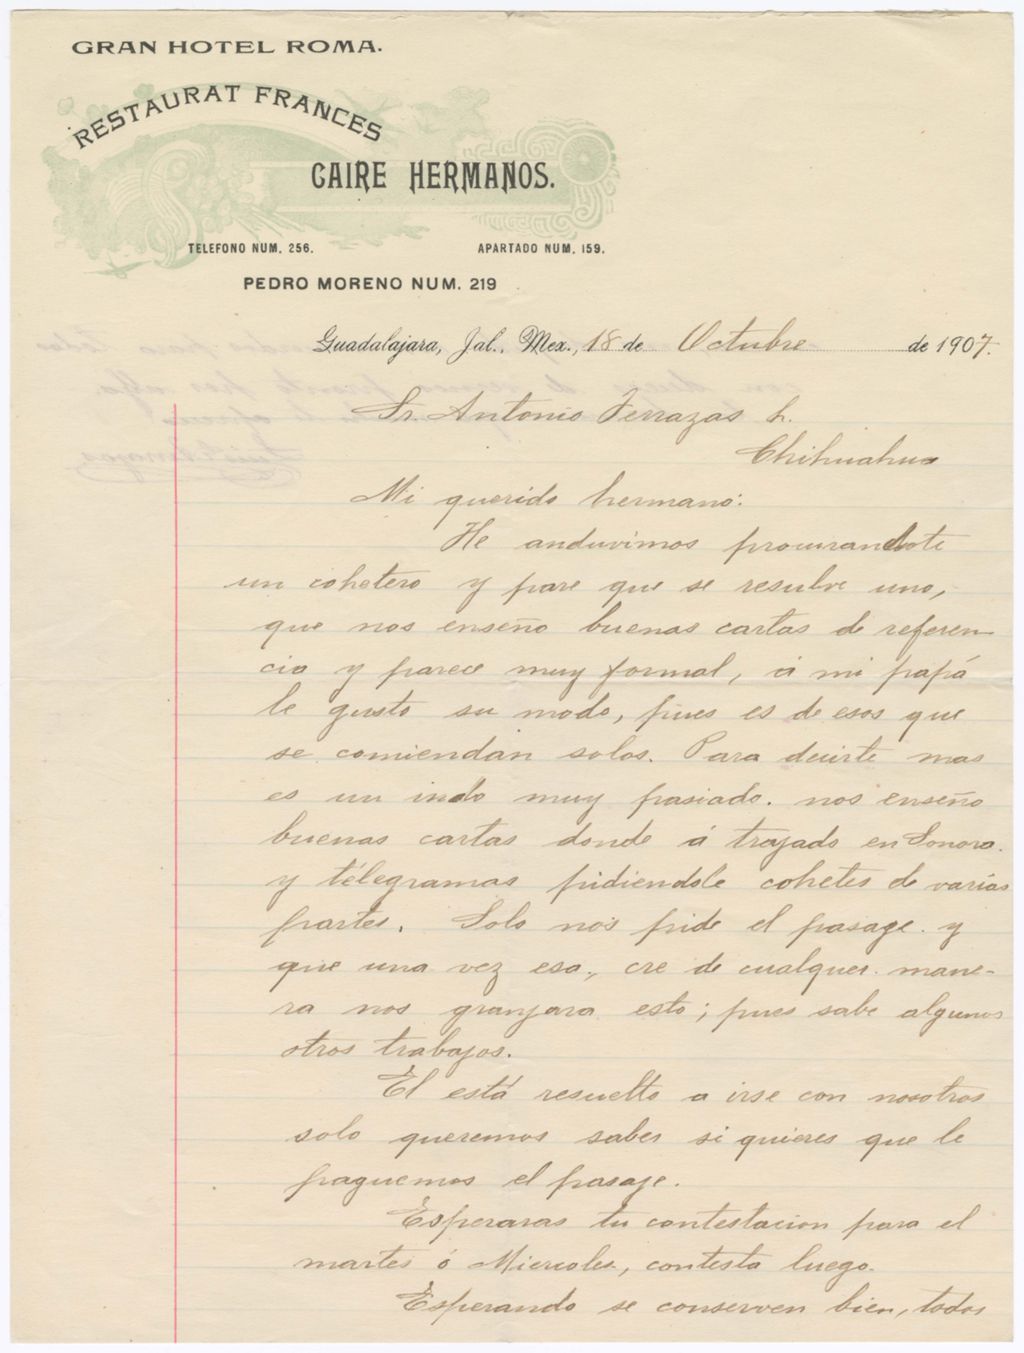 GRAN HOTEL ROMA.
RESTAURAT FRANCES
CAIRE HERMANOS.
TELEFONO NUM. 256. APARTADO NUM. 159.
PEDRO MORENO NUM. 219
Guadalajara, Jal., Mex., 18 de Octubre de 1907.
Sr. Antonio Terrazas h.
Chihuahua
Mi querido hermano:
He anduvimos procurandote
un cohetero y pare que se resulve uno,
que nos enseño buenas cartas de referen-
cia y parece muy formal, á mi papá
le gusto su modo, pues es de esos que
se comiendan solos. Para decirte mas
es un indo muy pasiado. nos enseño
buenas cartas donde á trajado en Sonora.
y télegramas pidiendole cohetes de varias
partes. Solo nos pide el pasage y
que una vez eso, cre de cualquer mane-
ra nos granjara esto; pues sabe algunos
otros trabajos.
El está resuelto a irse con nosotros
solo queremos saber si quieres que le
paguemos el pasaje.
Esperaras tu contestacion para el
martes ó Miercoles, contesta luego.
Esperando se conserven bien, todos